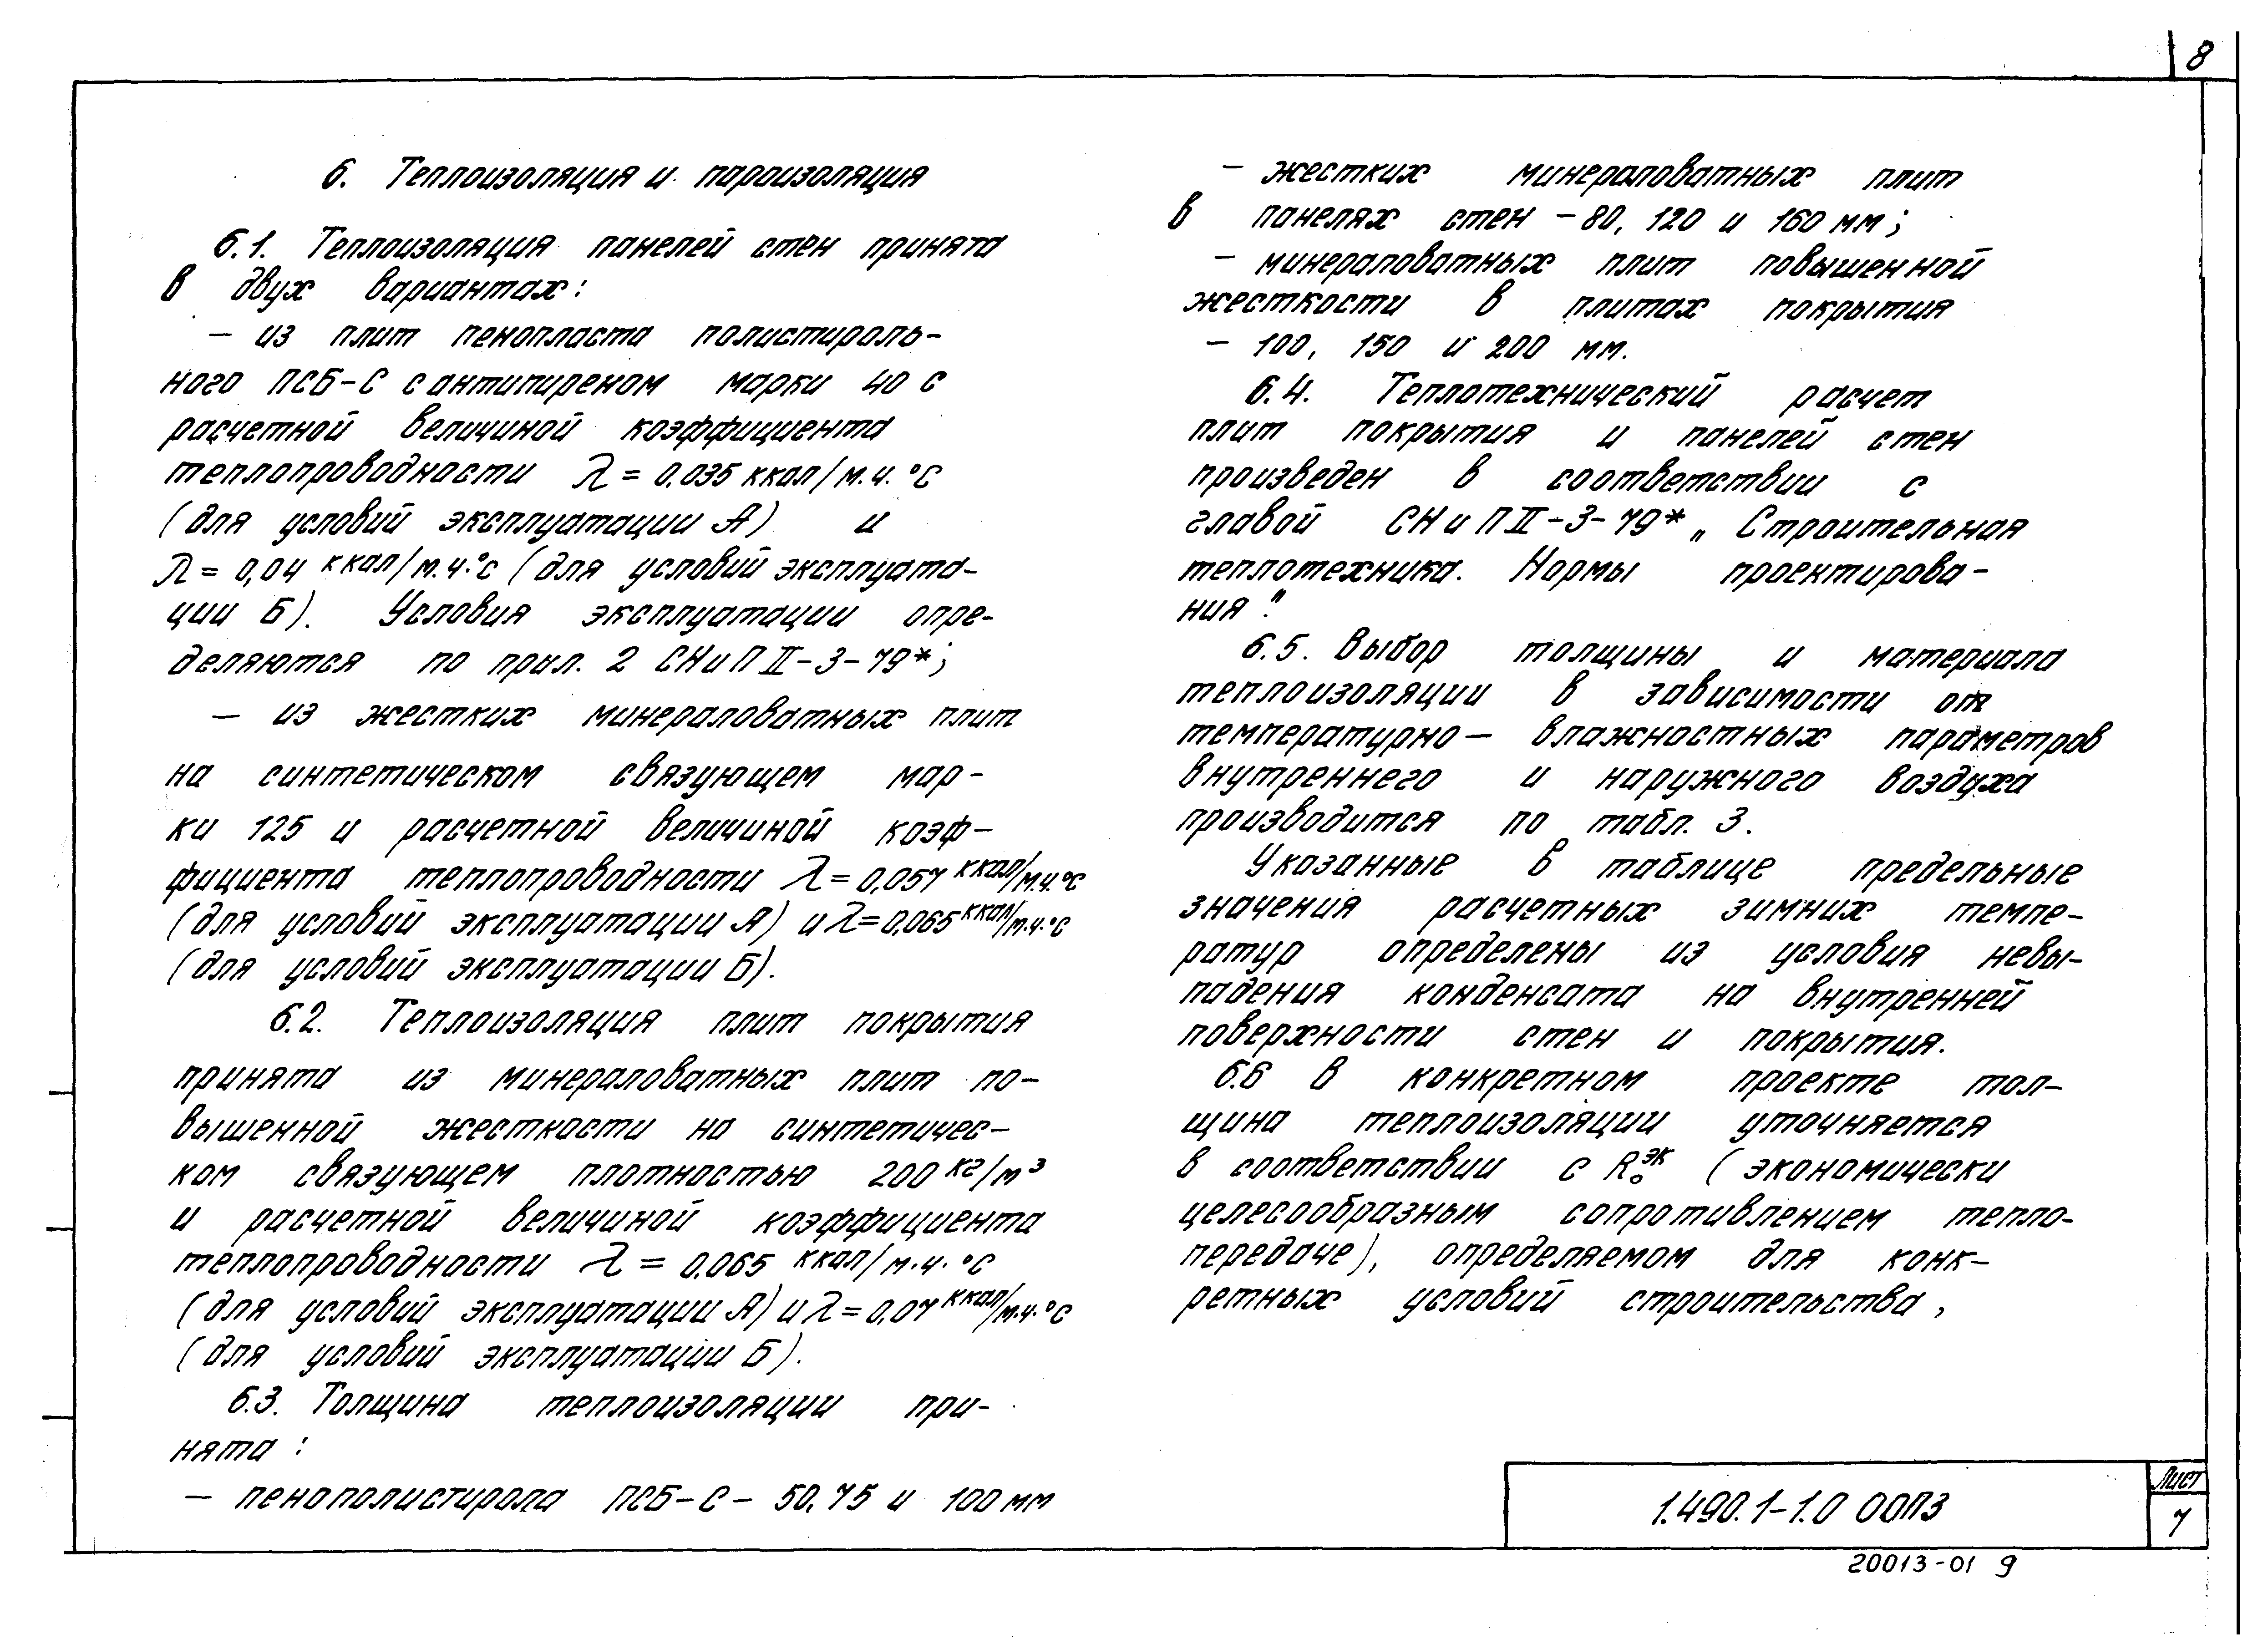 8
6. Теплоизоляция и пароизоляция
6.1. Теплоизоляция панелей стен принята
в двух вариантах:
– из плит пенопласта полистироль-
ного ПСБ-С с антипиреном марки 40 с
расчетной величиной коэффициента
теплопроводности λ = 0,035 ккал/м.ч.°С
(для условий эксплуатации А) и
λ = 0,04 ккал/м.ч.°С (для условий эксплуата-
ции Б). Условия эксплуатации опре-
деляются по прил. 2 СНиП II-3-79*;
– из жестких минераловатных плит
на синтетическом связующем мар-
ки 125 и расчетной величиной коэф-
фициента теплопроводности λ = 0,057 ккал/м.ч.°С
(для условий эксплуатации А) и λ = 0,065 ккал/м.ч.°С
(для условий эксплуатации Б).
6.2. Теплоизоляция плит покрытия
принята из минераловатных плит по-
вышенной жесткости на синтетичес-
ком связующем плотностью 200 кг/м³
и расчетной величиной коэффициента
теплопроводности λ = 0,065 ккал/м.ч.°С
(для условий эксплуатации А) и λ = 0,07 ккал/м.ч.°С
(для условий эксплуатации Б).
6.3. Толщина теплоизоляции при-
нята:
– пенополистирола ПСБ-С – 50, 75 и 100 мм
– жестких минераловатных плит
в панелях стен – 80, 120 и 160 мм;
– минераловатных плит повышенной
жесткости в плитах покрытия
– 100, 150 и 200 мм.
6.4. Теплотехнический расчет
плит покрытия и панелей стен
произведен в соответствии с
главой СНиП II-3-79* „Строительная
теплотехника. Нормы проектирова-
ния".
6.5. Выбор толщины и материала
теплоизоляции в зависимости от
температурно– влажностных параметров
внутреннего и наружного воздуха
производится по табл. 3.
Указанные в таблице предельные
значения расчетных зимних темпе-
ратур определены из условия невы-
падения конденсата на внутренней
поверхности стен и покрытия.
6.6 В конкретном проекте тол-
щина теплоизоляции уточняется
в соответствии с R₀ᵉᵏ (экономически
целесообразным сопротивлением тепло-
передаче), определяемом для конк-
ретных условий строительства,
1.490.1-1.0 00ПЗ
Лист
7
20013-01 9